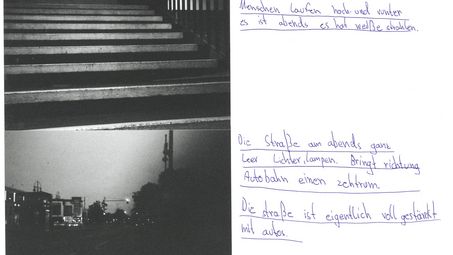 Menschen laufen hoch und runter
es ist abends es hat weiße strahlen.
Die Straße am abends ganz
Leer Lichter, lampen. Bringt richtung
Autobahn einen zehtrum
Die straße ist eigentlich voll gestärkt
mit autos